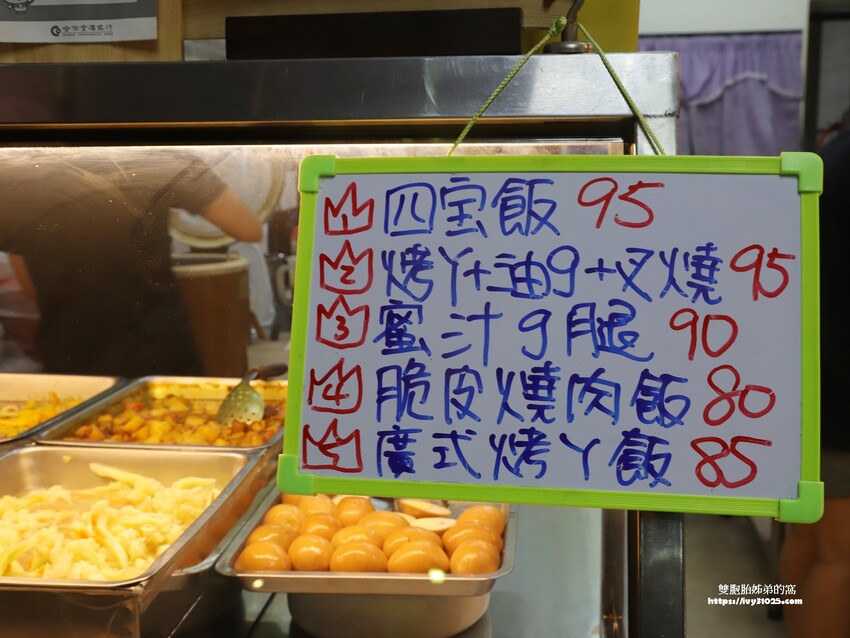 合作金庫銀行
1 四宝飯 95
2 烤丫+油g+叉燒 95
3 蜜汁g腿 90
4 脆皮燒肉飯 80
5 廣式烤丫飯 85
雙胞胎姊弟的窩
https://ivy31025.com